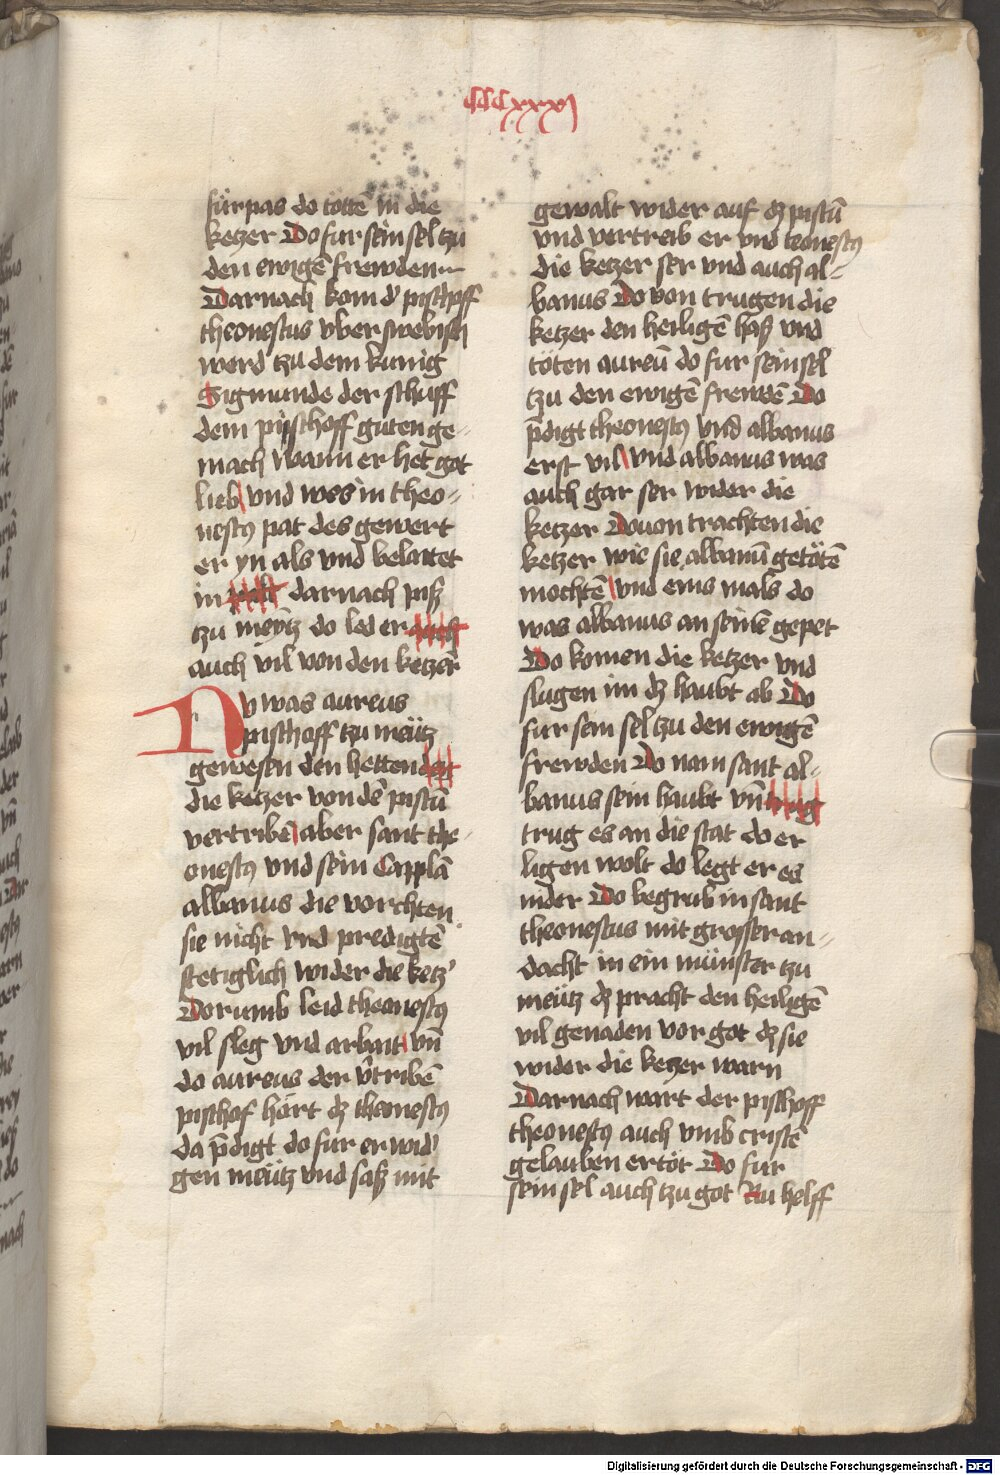 CCCxxxj
fürpas do tötte͂ in die
ketzer Do fur sein sel tzu
den ewige͂ frewden
Darnach kom d' pischoff
theonestus vber swebisch
werd tzu dem kunig
Sigmunde der schuff
dem pischoff guten ge-
mach wann er het got
lieb vnd wes in theo-
nestꝰ pat des gewert
er yn als vnd belaitet
in darnach pisz
tzu me͂ytz do led er auch
auch vil von den ketzer͂
Nv was aureus
pischoff tzu meu͂tz
gewesen den hetten
die ketzer von de͂ pistu͂
vertribe͂ aber sant the-
onestꝰ vnd sein Capplā
albanus die vorchten
sie nicht vnd predigte͂
stetiglich wider die ketz'
Dorumb leid theonestꝰ
vil sleg vnd arbait vn͂
do aureus der v͂tribe͂
pischof hört dz theonestꝰ
da p͂digt do fur er wid'
gen meu͂tz vnd sasz mit
gewalt wider auf dz pistu͂
vnd vertreib er vnd teonestꝰ
die ketzer ser vnd auch al-
banus Do von trugen die
ketzer den heilige͂ hasz vnd
töten aureu͂ do fur sein sel
tzu den ewige͂ frewde͂ Do
p͂digt theonestꝰ vnd albanus
erst vil vnd albanus was
auch gar ser wider die
ketzer Douon trachten die
ketzer wie sie albanu͂ getöte͂
mochte͂ vnd eins mals do
was albanus an seine͂ gepet
Do komen die ketzer vnd
slugen im dz haubt ab Do
fur sein sel tzu den ewige͂
frewden Do nam sant al-
banus sein haubt vn͂ trug
trug es an die stat do er
ligen wolt do legt er es
nider Do begrub in sant
theonestus mit grosser an-
dacht in ein münster tzu
meu͂tz dz pracht den heilige͂
vil genaden vor got dz sie
wider die ketzer warn
Darnach wart der pischoff
theonestꝰ auch vmb criste͂
gelauben ertöt Do fur
sein sel auch tzu got Nu helff
Digitalisierung gefördert durch die Deutsche Forschungsgemeinschaft - DFG